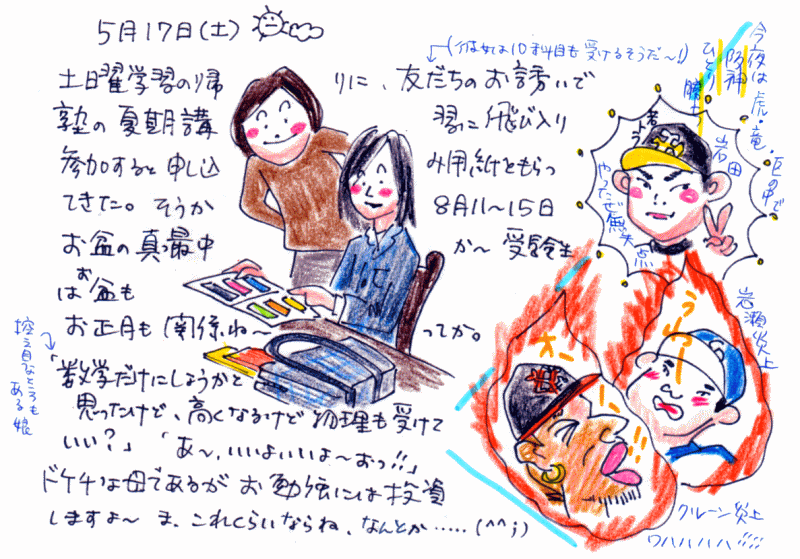 5月17日(土)
(彼女は10科目も受けるそうだ〜!)
土曜学習の帰りに、友だちのお誘いで
塾の夏期講習に飛び入り
参加すると申し込み用紙をもらっ
てきた。そうか 8月11〜15日
お盆の真っ最中か〜 受験生
はお盆も
お正月も関係ね〜ってか。
控え目なところも
ある娘
「数学だけにしようかと
思ったけど、高くなるけど物理も受けて
いい?」「あ〜、いいよいいよ〜おっ!!」
ドケチな母であるがお勉強には投資
しますよ〜 ま、これくらいならね、なんとか……(^^;)
今夜は虎・竜・巨の中で
阪神
ひとり勝ち
岩田
やったぜ無失点
岩瀬炎上
うわー
オー
ノー!!
クルーン炎上
ワハハハハ!!!!